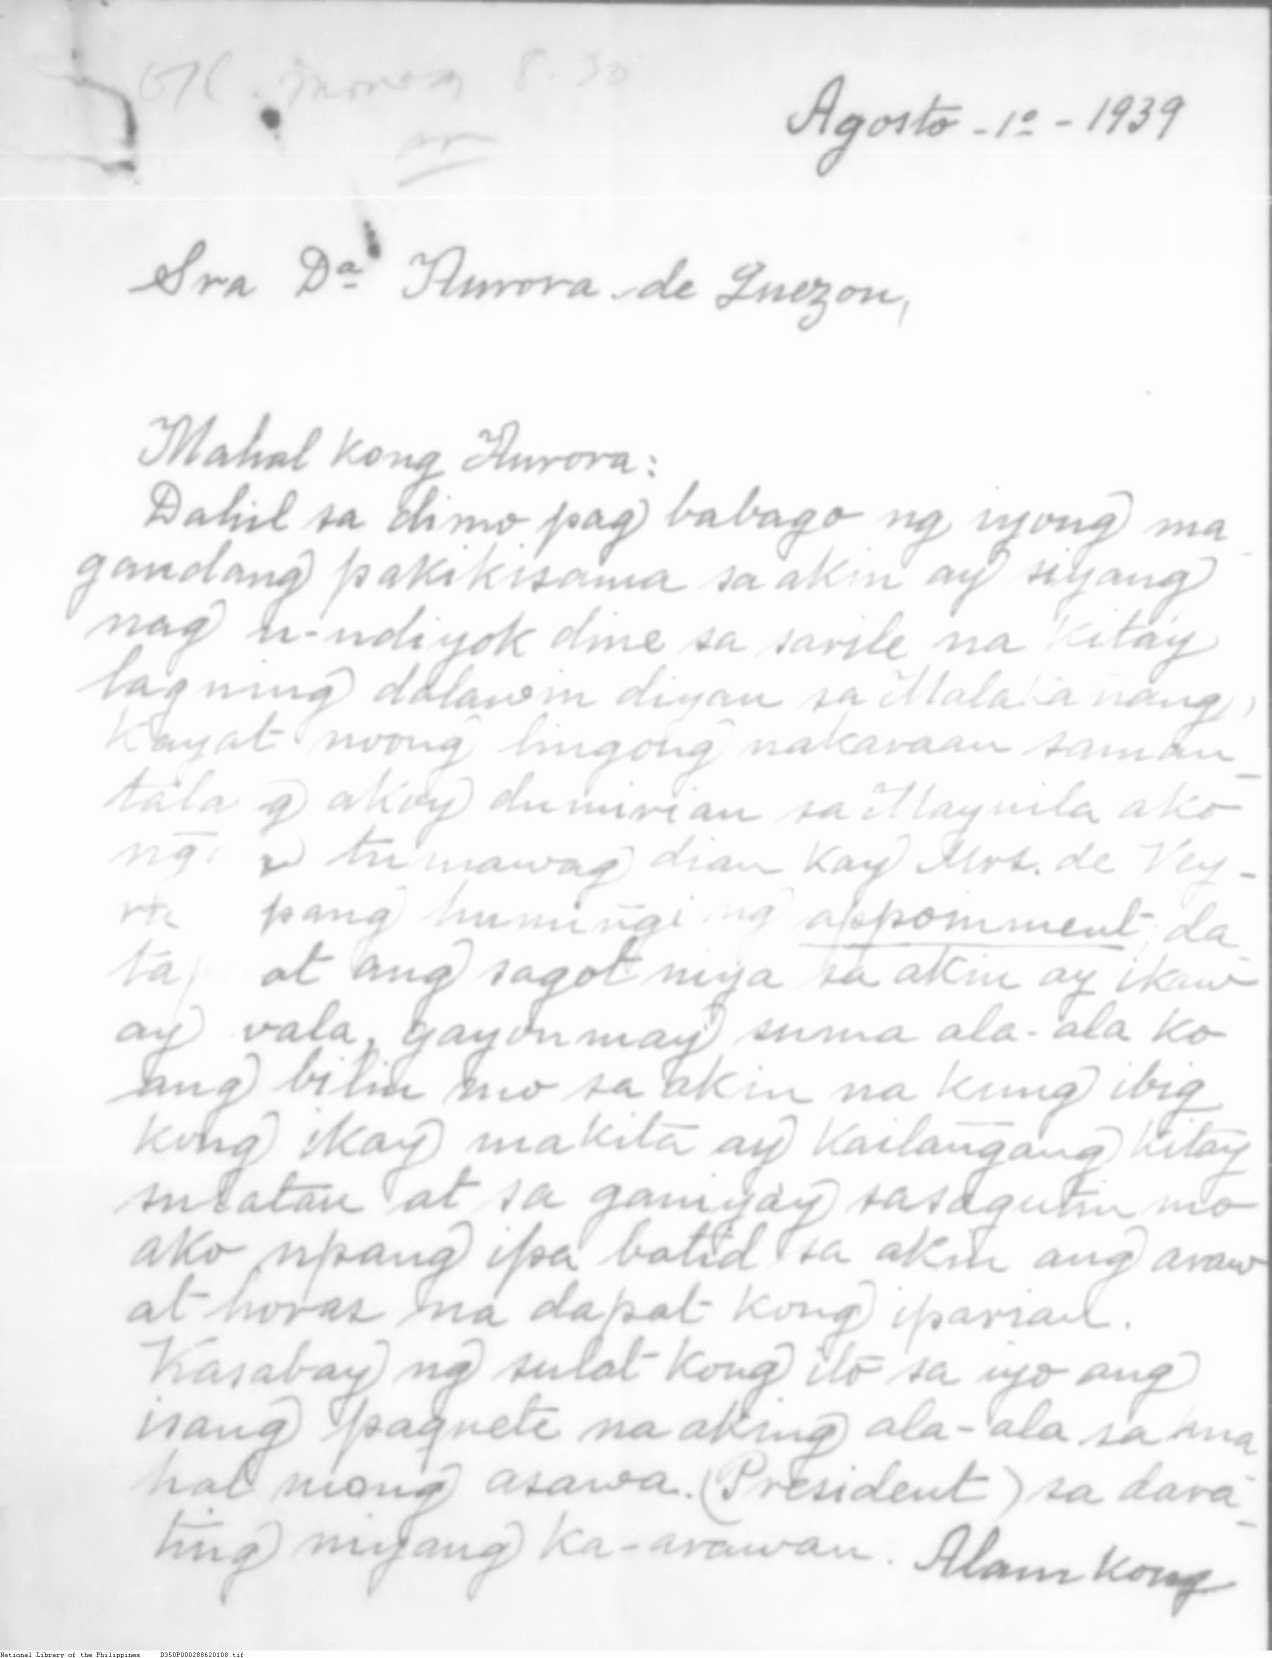 8.30
Agosto - 1º - 1939
Sra Dª Aurora de Quezon,
Mahal kong Aurora:
Dahil sa dimo pag babago ng iyong ma
gandang pakikisama sa akin ay siyang
nag u-udiyok dine sa sarile na kitay
lagning dalawin diyan sa Malakanang,
Kayat noong lingong nakaraan saman_
talag akoy dumirian sa Maynila ako
ng tumawag dian kay Mrs. de Vey_
ra pang humingi ng appoinment da
ta at ang sagot niya sa akin ay ikaw
ay vala, gayonmay suma ala-ala ko
ang bilin mo sa akin na kung ibig
kong ikay makita ay kailangang kitay
sulatan at sa ganiyay sasagutin mo
ako upang ipa batid sa akin ang araw
at horas na dapat kong iparian.
Kasabay ng sulat kong ito sa iyo ang
isang paquete na aking ala-ala sa ma
hal mong asawa. (President) sa dara_
ting niyang ka-arawan. Alam kong
National Library of the Philippines D350P000288620108.tif